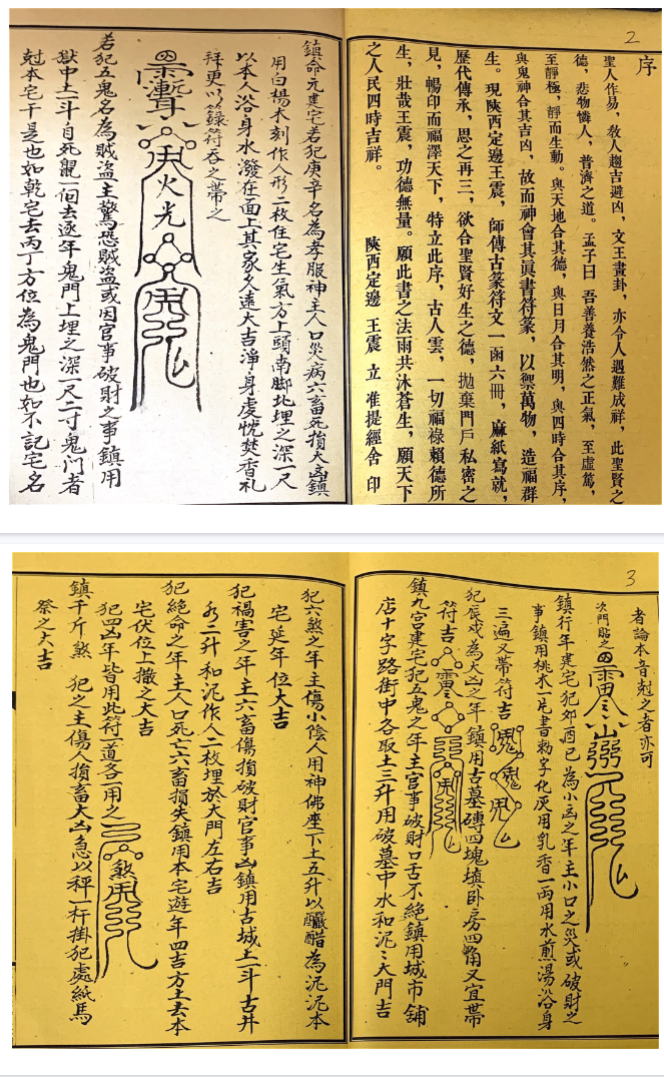 2
序
聖人作易，敎人趨吉避凶，文王畫卦，亦令人遇難成祥，此聖賢之
德，悲物憐人，普濟之道。孟子曰 吾善養浩然之正氣，至虛篤，
至靜極，靜而生動。與天地合其德，與日月合其明，與四時合其序，
與鬼神合其吉凶，故而神會其眞書符篆，以禦萬物，造福群
生。現陝西定邊王震，師傳古篆符文一函六冊，麻紙寫就，
歷代傳承，思之再三，欲合聖賢好生之德，拋棄門戶私密之
見，暢印而福澤天下，特立此序，古人雲，一切福祿賴德所
生，壯哉王震，功德無量。願此書之法雨共沐蒼生，願天下
之人民四時吉祥。
陝西定邊 王震 立 准提經舍 印
鎮命元建宅若犯庚辛名為孝服神主人口災病六畜死損大凶鎮
用白楊木刻作人形二枚住宅生氣方上頭南脚北埋之深一尺
以本人浴身水潑在面上其家久遠大吉淨身虔恍焚香礼
拜更以籙符吞之帶之
火光
若犯五鬼名為賊盜主驚恐賊盜或因官事破財之事鎮用
獄中土一斗自死鼠一個去逐年鬼門上埋之深一尺二寸鬼门者
尅本宅干是也如乾宅去丙丁方位為鬼門也如不記宅名
3
者論本音尅之者亦可
次門貼之
鎮行年建宅犯卯酉已為小凶之年主小口之災或破財之
事鎮用桃木一片書物字化灰用乳香一两用水煎湯浴身
三遍又帶符吉
犯辰戌為大凶之年鎮用古墓磚四塊填卧房四角又宜帶
符吉
鎮九宮建宅犯五鬼之年主官事破財口舌不絕鎮用城市舖
店十字路街中各取土三升用破墓中水和泥泥大門吉
犯六煞之年主傷小陰人用神佛座下土五升以釅醋為泥泥本
宅延年位大吉
犯禍害之年主六畜傷損破財官事凶鎮用古城土一斗古井
水二升和泥作人二枚埋於大門左右吉
犯絕命之年主人口死亡六畜損失鎮用本宅遊年四吉方土去本
宅伏位上撒之大吉
犯四凶年皆用此符一道各一用之
煞
鎮千斤煞 犯之主傷人損畜大凶急以秤一杆掛犯處紙馬
祭之大吉